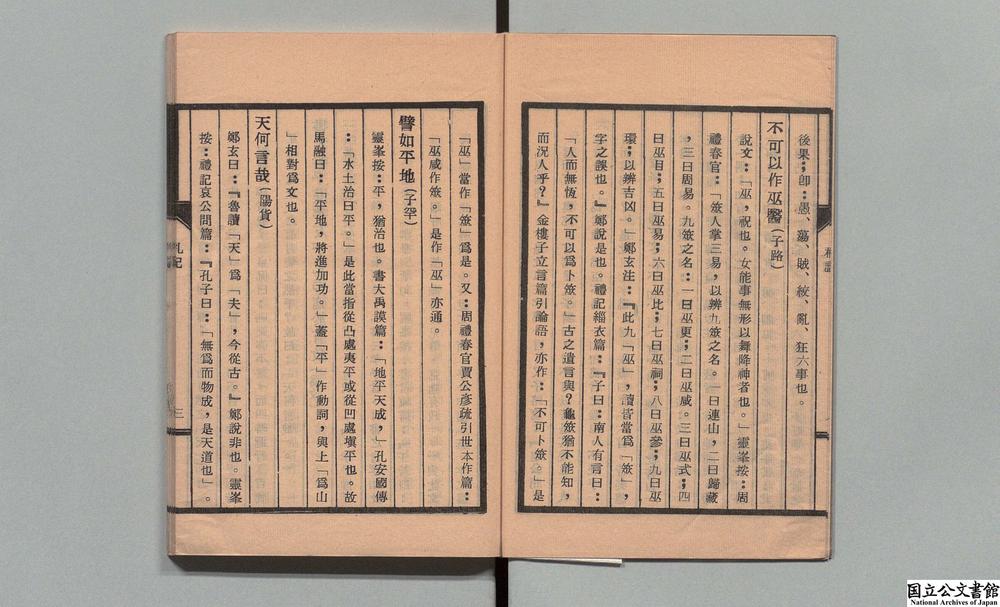 後果；卽：愚、蕩、賊、絞、亂、狂六事也。
不可以作巫醫（子路）
說文：「巫，祝也。女能事無形以舞降神者也。」靈峯按：周
禮春官：「筮人掌三易，以辨九筮之名。一曰連山，二曰歸藏
，三曰周易。九筮之名：一曰巫更；二曰巫咸。三曰巫式；四
曰巫目；五曰巫易；六曰巫比；七曰巫祠；八曰巫參；九曰巫
環；以辨吉凶。」鄭玄注：『此九「巫」，讀皆當爲「筮」，
字之誤也。』鄭說是也。禮記緇衣篇：『子曰：南人有言曰：
「人而無恆，不可以爲卜筮。」古之遺言與？龜筮猶不能知，
而況人乎？』金樓子立言篇引論語，亦作：「不可卜筮。」是
「巫」當作「筮」爲是。又：周禮春官賈公彥疏引世本作篇：
「巫咸作筮。」是作「巫」亦通。
譬如平地（子罕）
靈峯按：平，猶治也。書大禹謨篇：「地平天成，」孔安國傳
：「水土治曰平。」是此當指從凸處夷平或從凹處塡平也。故
馬融曰：「平地，將進加功。」蓋「平」作動詞，與上「爲山
」相對爲文也。
天何言哉（陽貨）
鄭玄曰：『魯讀「天」爲「夫」，今從古。』鄭說非也。靈峯
按：禮記哀公問篇：『孔子曰：「無爲而物成，是天道也」。
札記
三
国立公文書館
National Archives of Japan